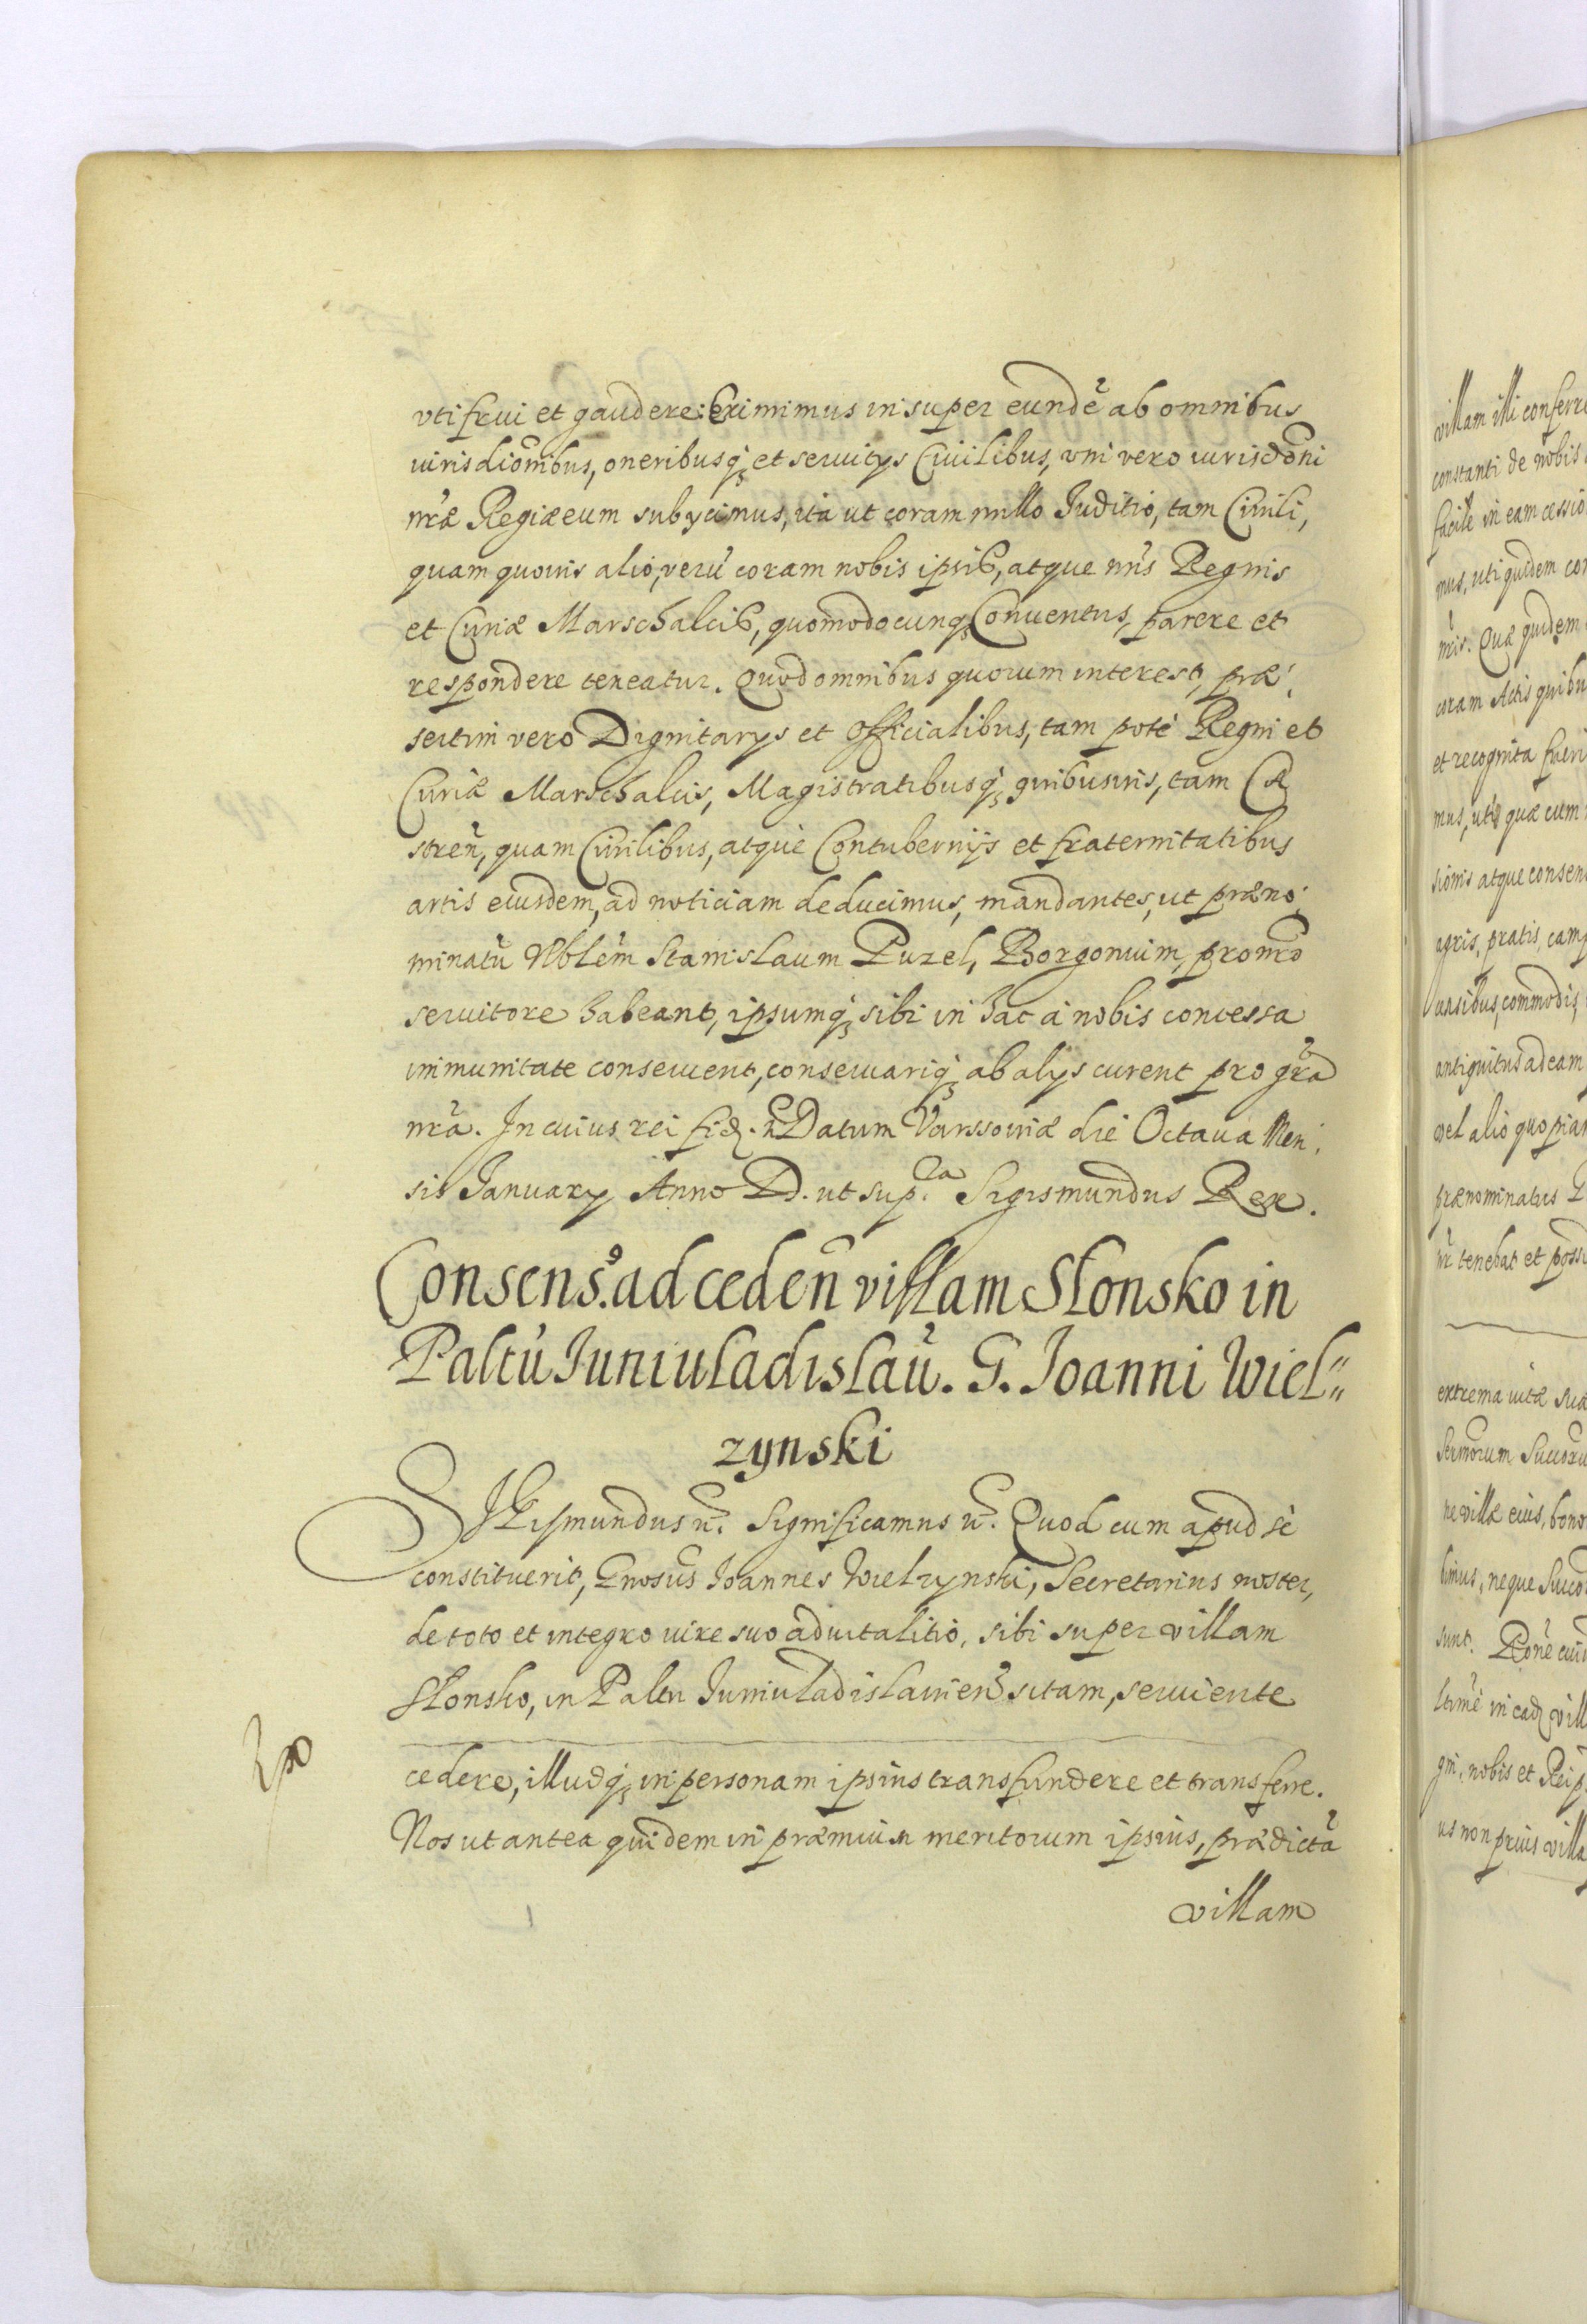 vti frui et gaudere: Eximimus insuper eundẽ ab omnibus
iurisdiõnibus, oneribusq₃ et seruitys Ciuilibus, vni vero iurisdõni
nr̃æ Regiæ eum subycimus, ita ut coram nullo Juditio, tam Ciuili,
quam quouis alio, verũ coram nobis ipsib, atque nr̃is Regnis
et Curiæ Marschalcib, quomodocunq₃ Conuentus, parere et
respondere teneatur. Quod omnibus quorum interest, præ,
sertim vero Dignitarys et officialibus, tam potẽ Regni et
Curiæ Marschalcis, Magistratibusq₃ quibusuis, tam Ca
streñ, quam Ciuilibus, atque Contubernijs et fraternitatibus
artis eiusdem, ad noticiam deducimus, mandantes, ut præno,
minatũ Nblẽm Stanislaum Puzel, Borgonium, pro nr̃o
seruitore habeant, ipsumq₃ sibi in hac a nobis concessa
immunitate conseruent, conseruariq₃ ab alys curent pro gr̃a
nr̃a. In cuius rei fid. &c. Datum Varssouiæ die Octaua Men,
sis January Anno D. ut sup.ra Sigismundus Rex.
Consens9. ad cedeñ villam Slonsko in
Paltũ Juniuladislaũ. G. Joanni Wiel"
zynski
SIGismundus &c. Significamus &c. Quod cum apud sẽ
constituerit, Gnosus Joannes Wielzynski, Secretarius noster,
de toto et integro iure suo aduitalitio, sibi super villam
Slonsko, in Paltu Juniuladislauieñ sitam, seruiente
cedere, illudq₃ in personam ipsius transfundere et transferre.
Nos ut antea quidem in præmium meritorum ipsius, prædictã
villam
villam illi conferre
constanti de nobis
facile in eam cessio
mus, uti quidem con
nr̃is. Quæ quidem
coram Actis quibu
et recognita fueri
mus, utq₃ quæ cum
sionis atque consens
agris, pratis, camp
uarsibus, commodis,
antiquitus ad eam
vel alio quopiam
prænominatus G
tenebat et posse
extrema uitæ suæ
Sermõrum Succorũ
ne villæ eius, bono
limus, neque Succo
sunt. Põne eiusd
ltimẽ in ead villa
gni, nobis et Reip
us non prius villa